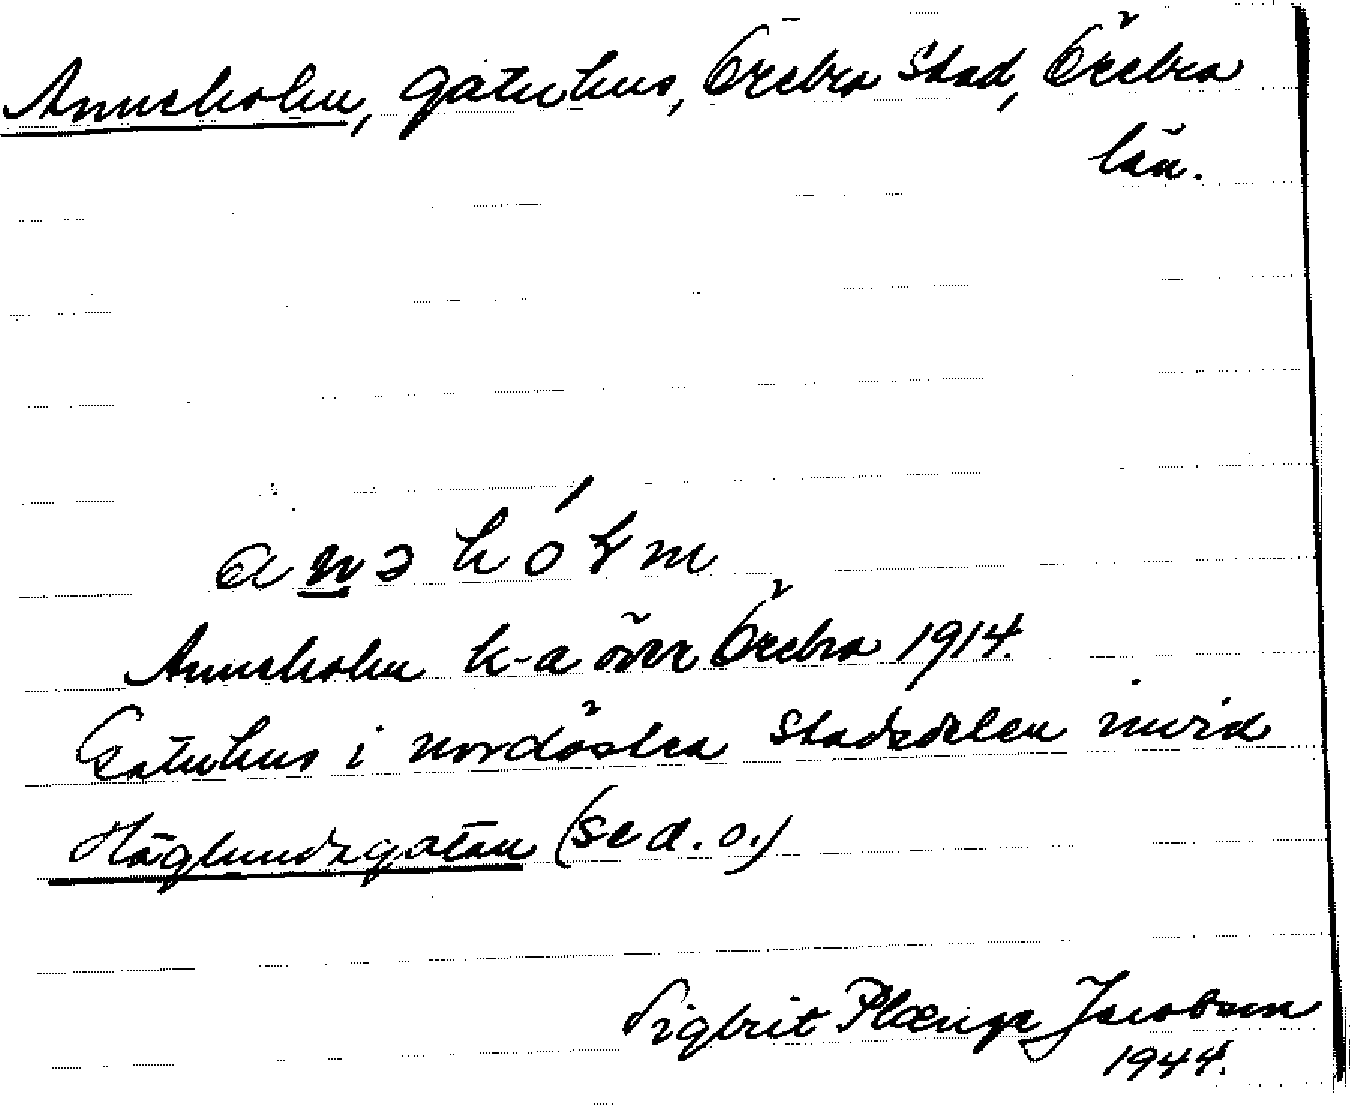 Anneholm, gatuhus, Örebro stad, Örebro
län.
anə hółm
Anneholm k-a över Örebro 1914.
Gatuhus i nordöstra stadsdelen invid
Höglundagatan (se d. o.)
Sigbrit Plænge Jacobson
1944.